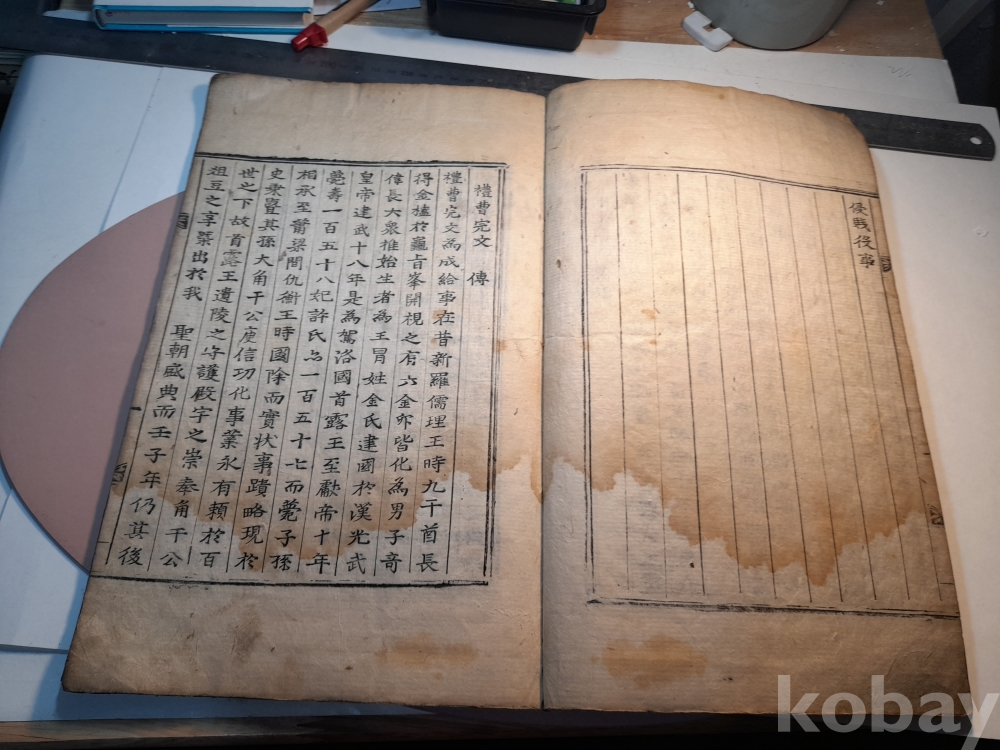 侵 役事
禮曹完文 傳
禮曹完文為成給事在昔新羅儒理王時九干酋長
得金榼於龜旨峯開視之有六金卵皆化為男子奇
偉長大衆推始生者為王冒姓金氏建國於漢光武
皇帝建武十八年是為駕洛國首露王至獻帝十年
薨壽一百五十八妃許氏亦一百五十七而薨子孫
相承至蕭梁間仇衡王時國除而實狀事蹟略現於
史乘曁其孫大角干公庾信功化事業永有賴於百
世之下故首露王遺陵之守護殿宇之崇奉角干公
俎豆之享槩出於我 聖朝盛典而壬子年仍其後
kobay